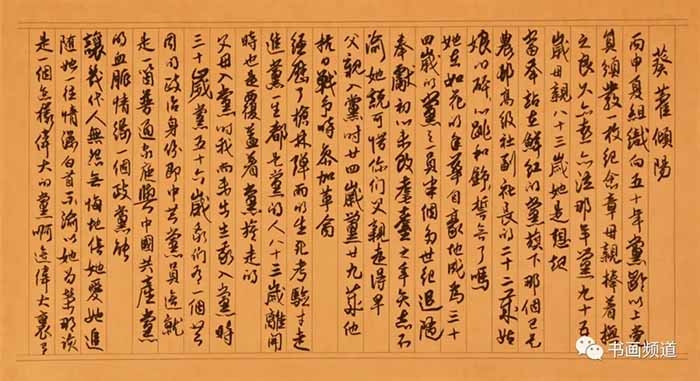 葵藿傾陽
丙申夏組織向五十年黨齡以上黨
員頒發一枚紀念章母親捧着撫
之良久亦喜亦泣那年黨九十五
歲母親八十三歲她是想起
當年站在鮮紅的黨旗下那個已是
農村高級社副社長的二十二歲姑
娘的砰砰心跳和錚錚誓言了嗎
她在如花的年華自豪地成為三十
四歲的黨之一員半個多世紀追隨
奉獻初心未改耄耋之年矢志不
渝她說可惜你們父親走得早
父親入黨時廿四歲黨廿九歲他
抗日戰爭時參加革命
經歷了槍林彈雨的生死考驗才走
進黨一生都是黨的人八十三歲離開
時也是覆蓋着黨旗走的
父母入黨時我尚未出生我入黨時
三十歲黨五十六歲我們有一個共
同的政治身份即中共黨員這就
是一個普通家庭與中國共產黨
的血脈情緣一個政黨能
讓幾代人無怨無悔地信她愛她追
隨她一往情深白首不渝以她為榮那該
是一個怎樣偉大的黨啊這偉大裏
书画频道